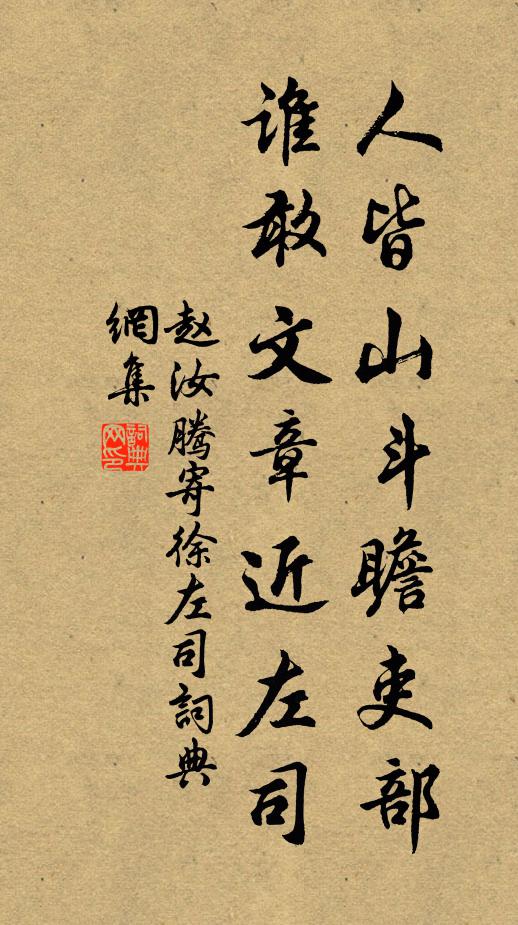 人皆山斗瞻吏部
谁敢文章近左司
赵汝腾寄徐左司詞典
網集
詞典網印